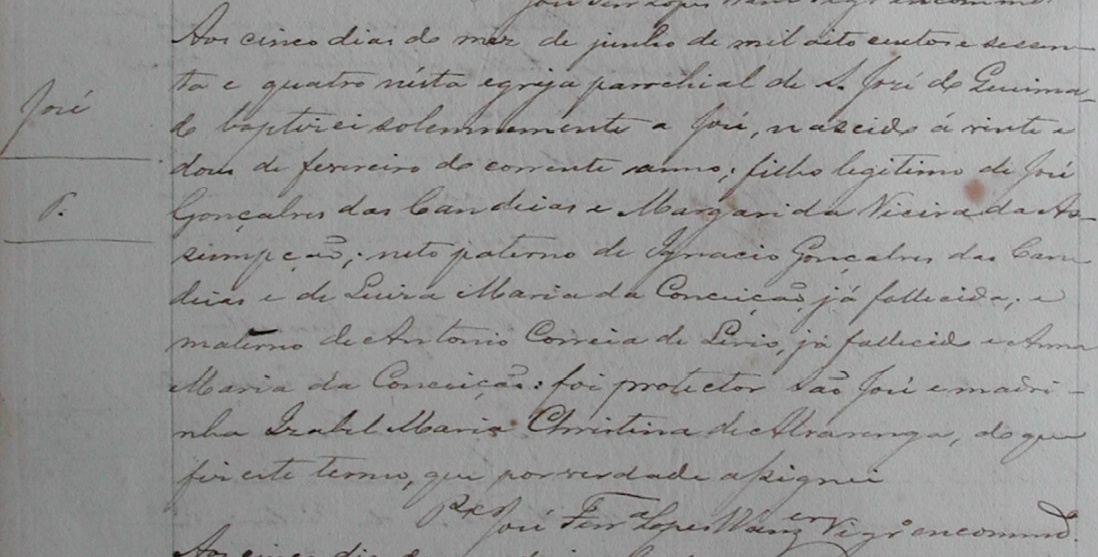 José Ferrª Lopes Wanzer Vigrº encommdº
Aos cinco dias do mez de junho de mil oito centos e sessen-
ta e quatro nésta egreja parochial de S. José de Queima-
do baptizei solemnemente a José, nascido á vinte e
dous de fevereiro do corrente anno; filho legitimo de José
Gonçalves das Candeias e Margarida Vieira da As-
sumpção; neto paterno de Ignacio Gonçalves das Can-
deias e de Luiza Maria da Conceição, já fallecida; e
materno de Antonio Correia de Lirio, já fallecido e Anna
Maria da Conceição: foi protector são José e madri-
nha Izabel Maria Christina de Alvarenga, do que
fiz este termo, que por verdade assignei
José Ferrª Lopes Vigrº encommdº
Aos cinco dias do
José
P.